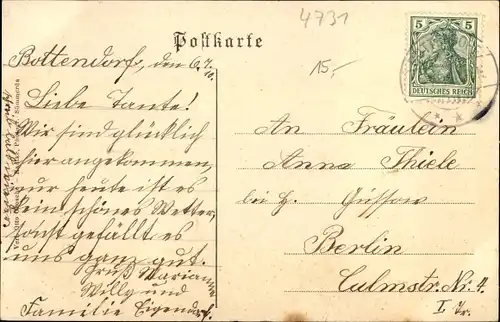 4731
Postkarte
15,-
5 5
DEUTSCHES REICH
Bottendorf, den 6.7.
Liebe Tante!
Wir sind glücklich
hier angekommen,
nur heute ist es
kein schönes Wetter,
sonst gefällt es
uns ganz gut.
Gruß Marianne
Willy und
Familie Eigendorf
An Fräulein
Anna Thiele
bei H. Gussow
Berlin
Culmstr. Nr. 4.
I Tr.